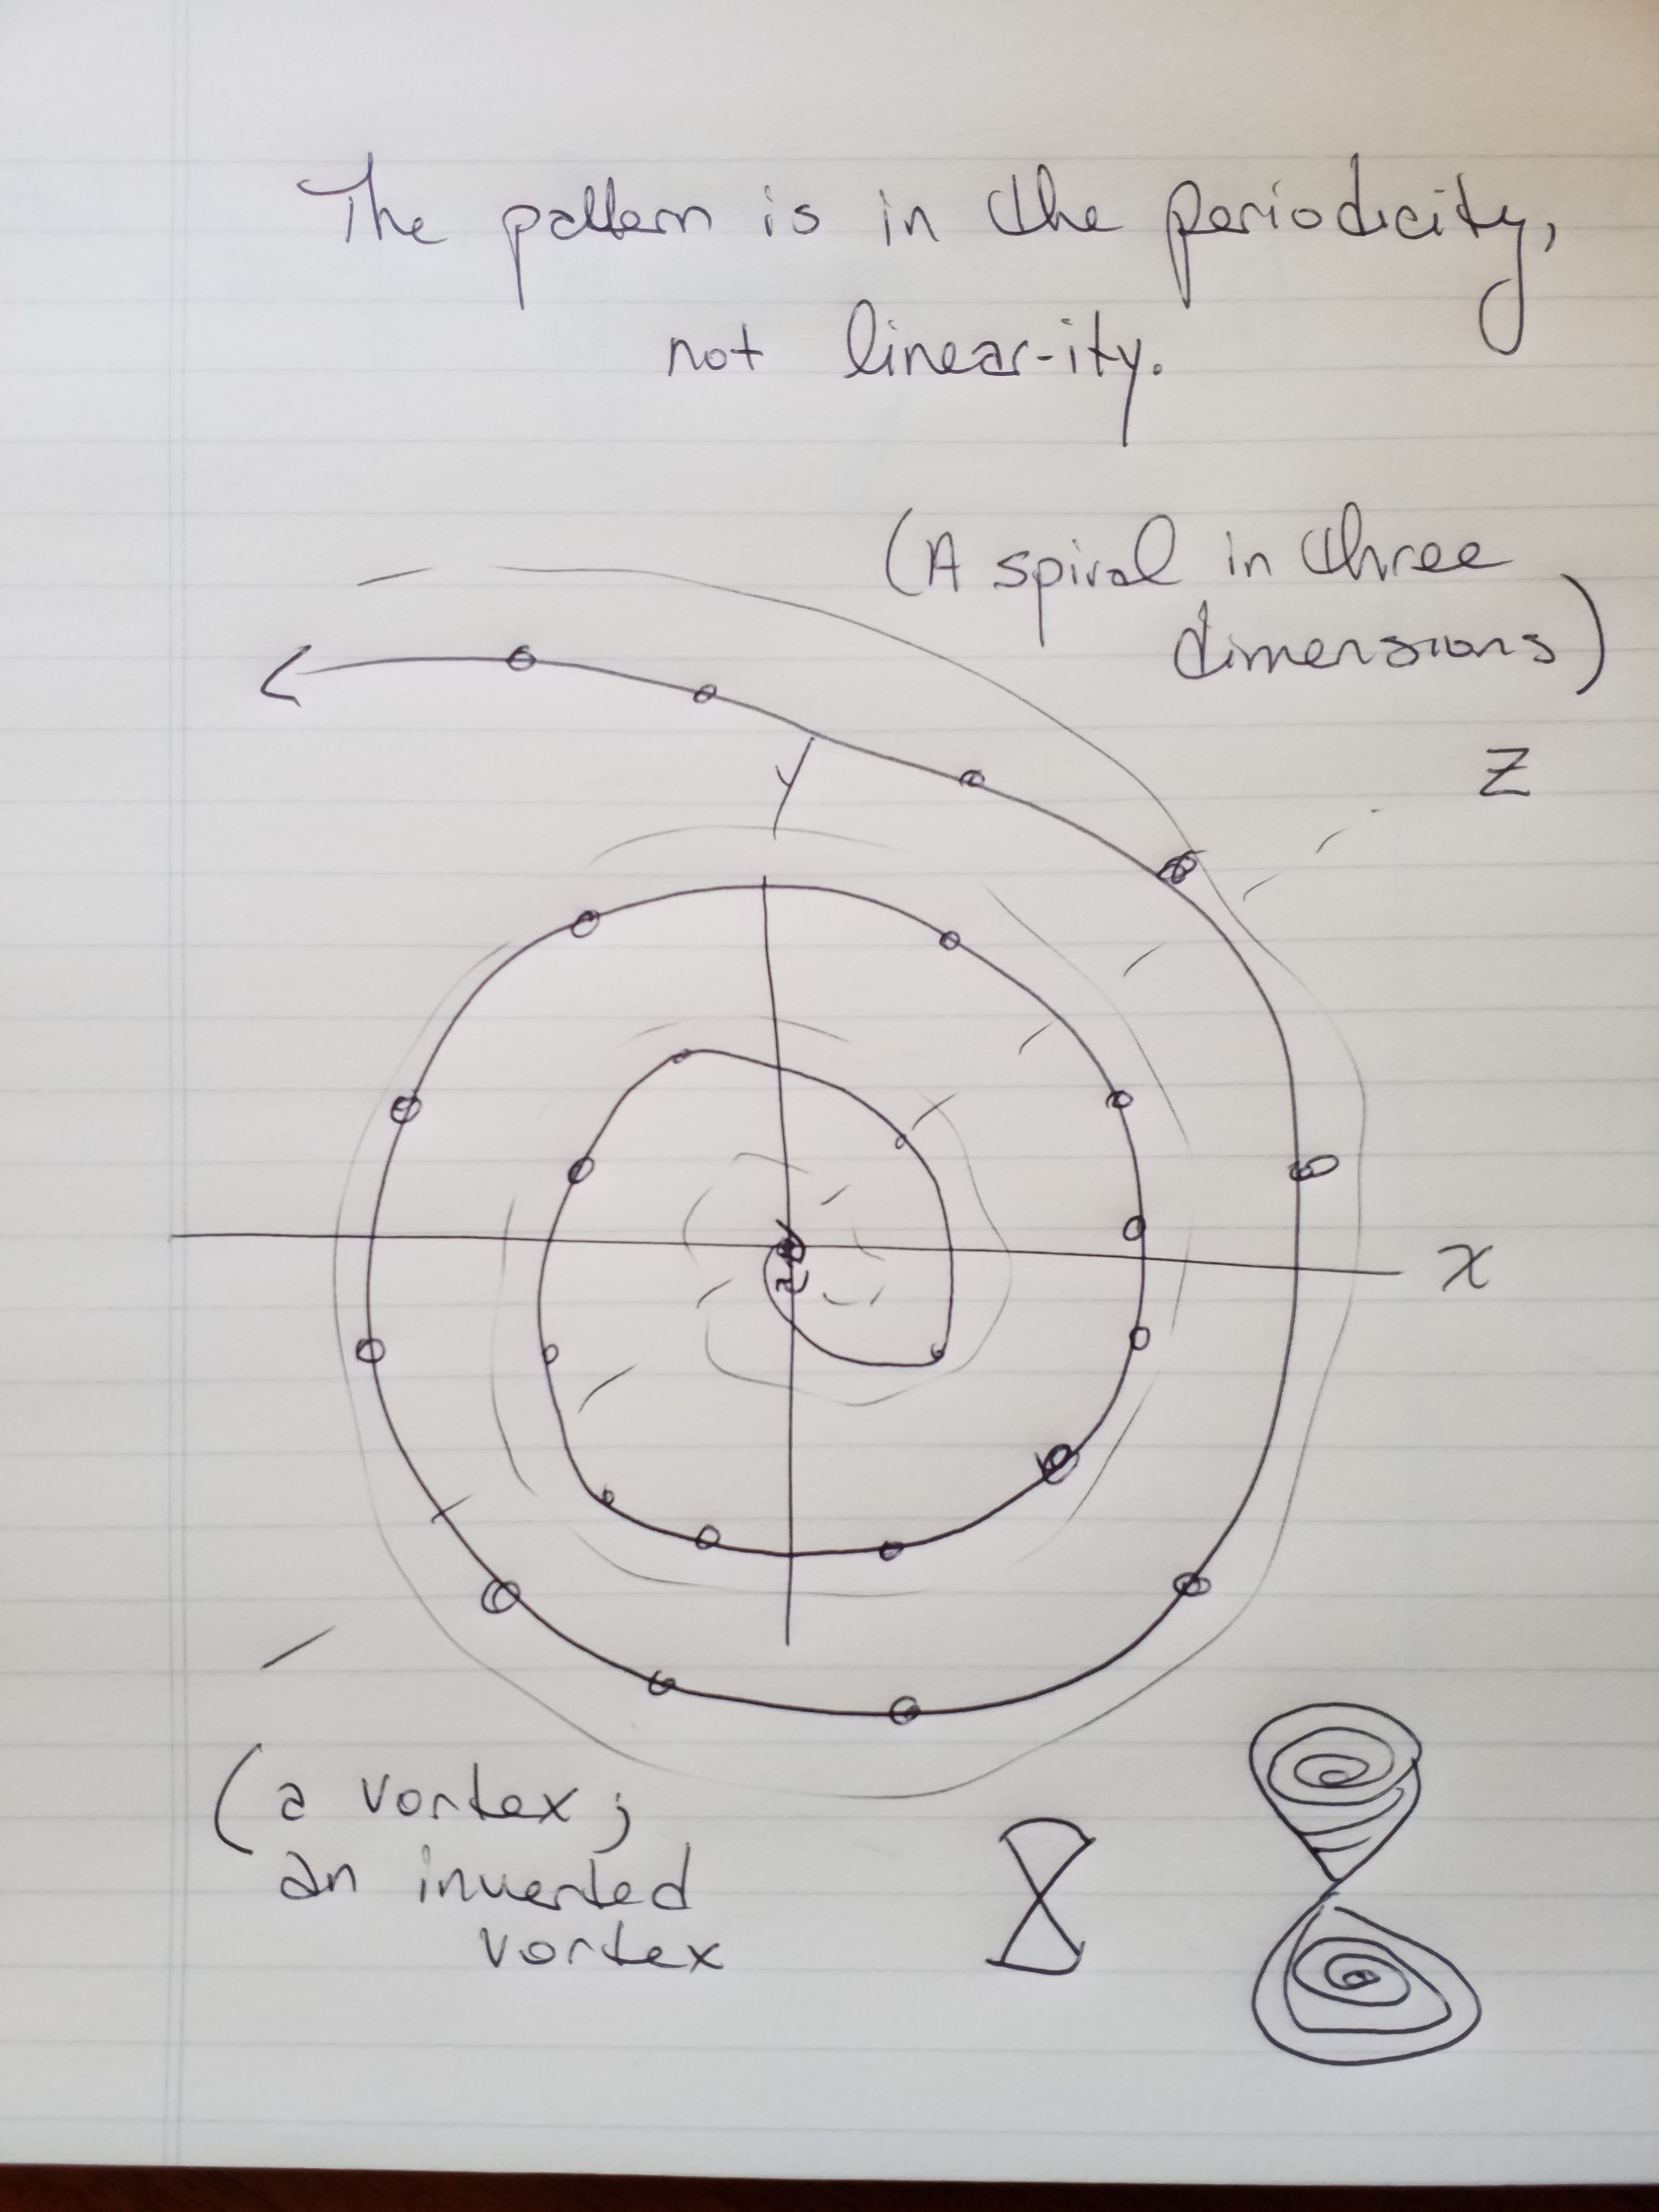 The pattern is in the periodicity,
not linear-ity.
(A spiral in three
dimensions)
Z
y
x
(a vortex;
an inverted
vortex